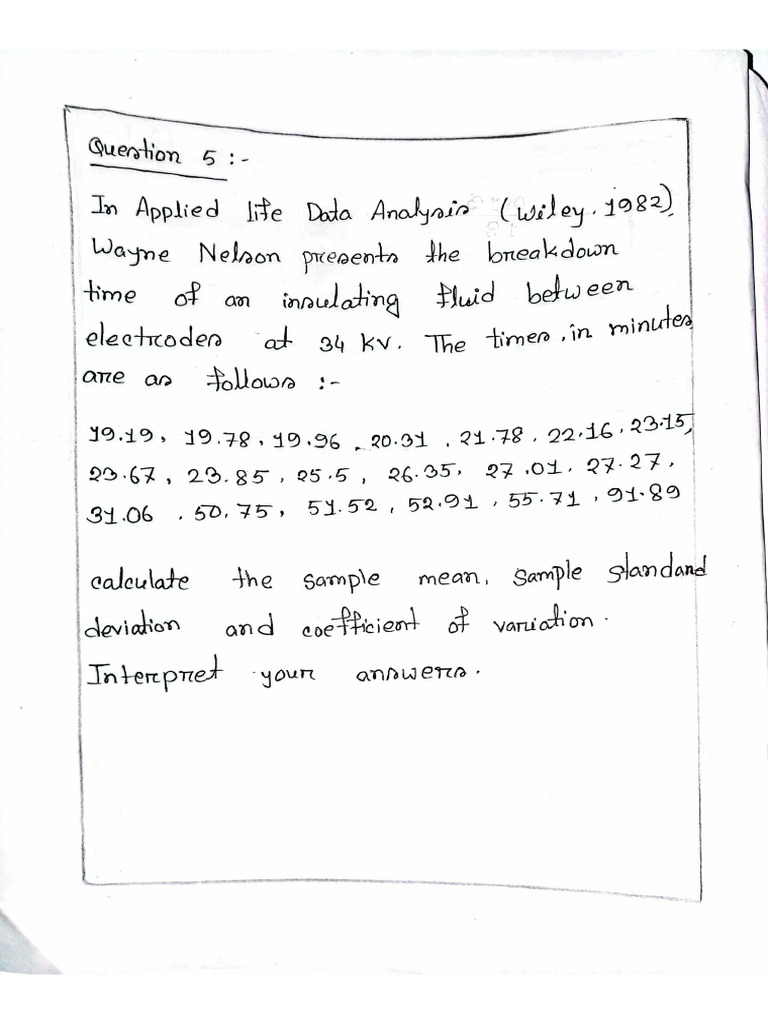 Question 5 :-
In Applied life Data Analysis (Wiley. 1982),
Wayne Nelson presents the breakdown
time of an insulating fluid between
electrodes at 34 kv. The times, in minutes
are as follows :-
19.19, 19.78, 19.96, 20.31, 21.78, 22.16, 23.15,
23.67, 23.85, 25.5, 26.35, 27.01, 27.27,
31.06, 50.75, 51.52, 52.91, 55.71, 91.89
calculate the sample mean, sample standard
deviation and coefficient of variation.
Interpret your answers.